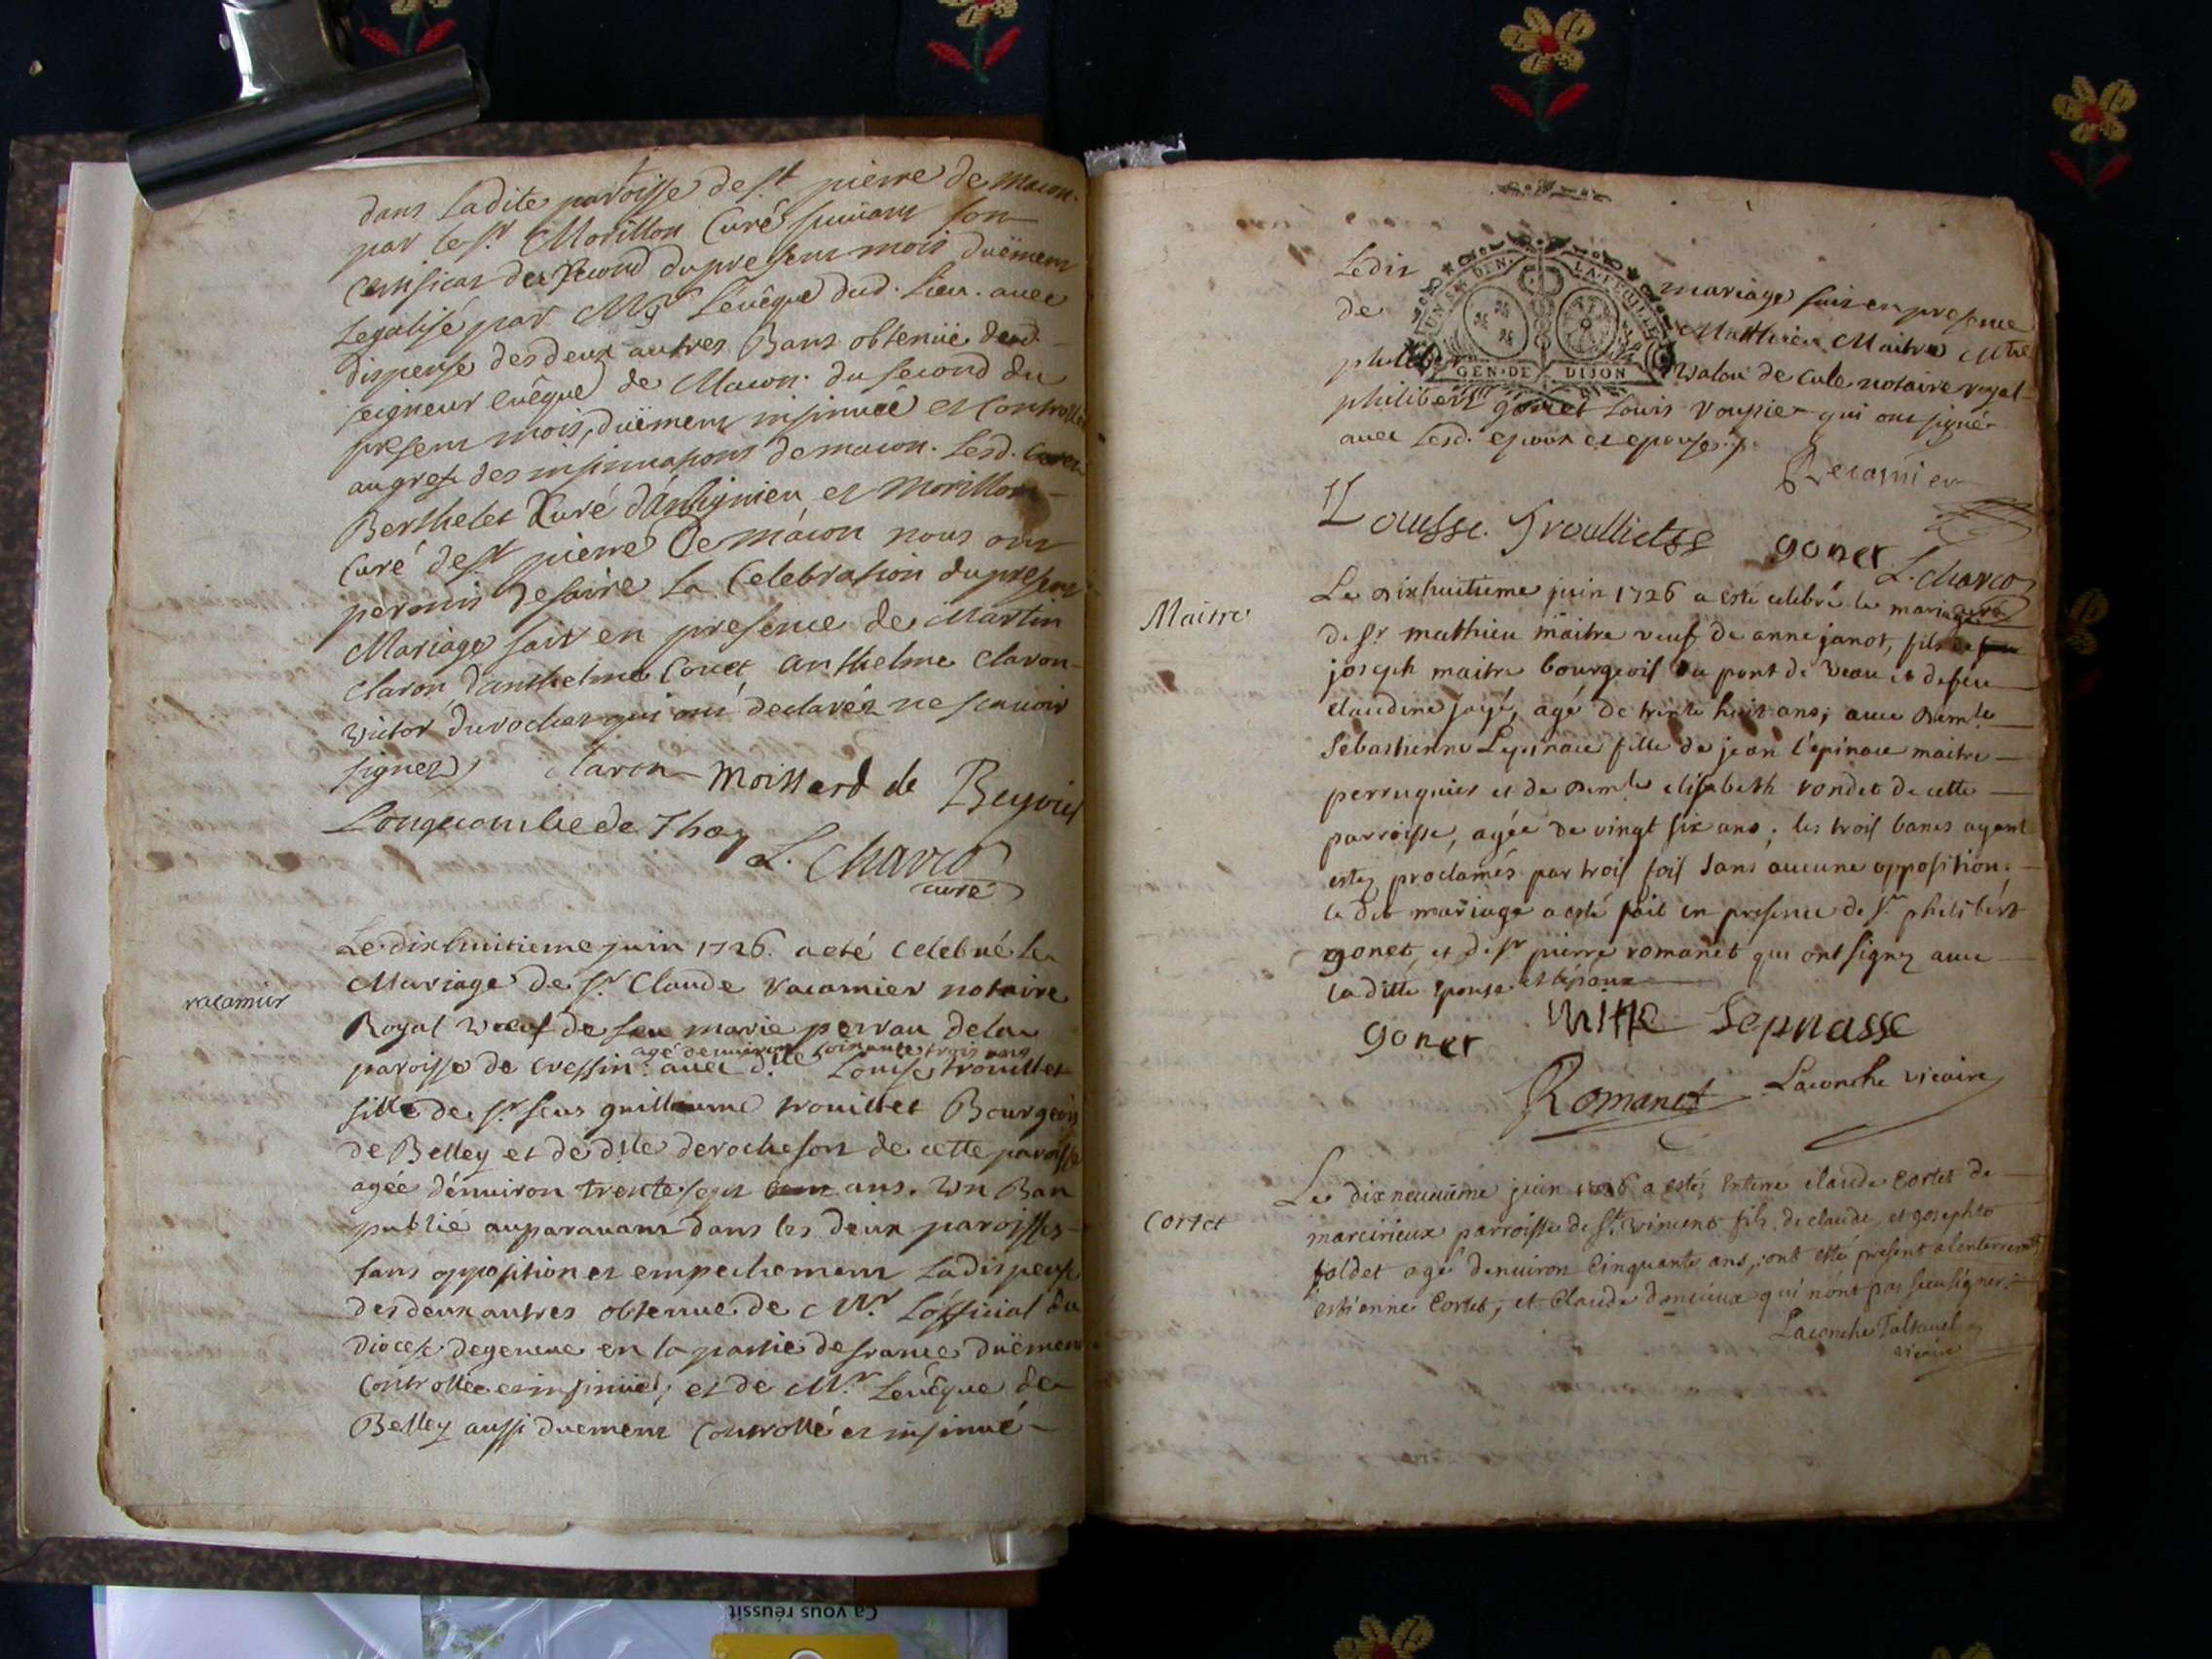 dans Ladite paroisse de St pierre de macon.
par le Sr. Morillon Curé suivant son
certificat du second du present mois duëment
Legalisé par Mgr L'evêque dud. Lieu. avec
dispense des deux autres Bans obtenüe dud.
seigneur evêque de Macon. du second du
present mois, duëment insinuée et Controllée
au grefe des insinuations de macon. Lesd.
Berthelet Curé d'Ambignieu et Morillon
Curé de St pierre De mâcon nous ont
permis de faire La Celebration du present
Mariage fait en presence de Martin
Claron d'anthelme Couet Anthelme Claron
victor durocher qui ont declarés ne scavoir
signer
Claron Moissard de Beyviel
Longecombe de Thoy
L. Charcot
curé
racamier
Le dixhuitieme juin 1726. a eté Celebré le
Mariage de Sr. Claude racamier notaire
Royal vœuf de feu marie perrau de la
agé denviron soixante trois ans
paroisse de Cressin. avec d.lle Louise trouillet
fille de Sr. feus guillaume trouillet Bourgeois
de Belley et de d.lle derochefort de cette paroisse
agée d'environ trente sept ans. un Ban
publié auparavant dans les deux paroisses
sans opposition et empechement La dispense
des deux autres obtenue de Mr. L'official du
diocese de geneve en la partie de france duëment
Controllée et insinuée; et de Mr. L'evêque de
Belley aussi duement Controllé et insinué
Ledit mariage fait en presence
de Matthieu Maitre
philibert de Cule notaire royal
philibert gonet Louis qui ont signé
avec Lesd. epoux et epouse
Recamier
Louisse. Troulliette
gonet
L. Charcot
UN S. 4 DEN. LA FEUILLE
GEN. DE DIJON
Maitre
Le dixhuitieme juin 1726 a esté celebré le mariage
de Sr mathieu maitre veuf de anne janot, fils de
joseph maitre bourgeois du pont de Veau et de feüe
claudine joyé, agé de trente huit ans; avec demlle
Sebastienne Lepinace fille de jean l'epinace maitre
perruquier et de demlle elisabeth rondet de cette
parroisse, agée de vingt six ans; les trois bancs ayant
estez proclamés par trois fois sans aucune opposition.
le dit mariage a esté fait en presence de Sr. philibert
gonet, et de Sr pierre romanet qui ont signez avec
la ditte epouse et l'epoux
gonet Mitre Lepinasse
Romanet Laconche vicaire
Cortet
Le dixneuvième juin 1726 a esté Enterré claude Cortet de
marcirieux parroisse de St. Vincent fils de claude, et josephte
foldet agé denviron Cinquante ans, ont esté present a lenterrement
estienne Cortet, et Claude Dancieux qui n'ont pas sceu signer
Laconche Taltavel
vicaire
Ça vous réussit